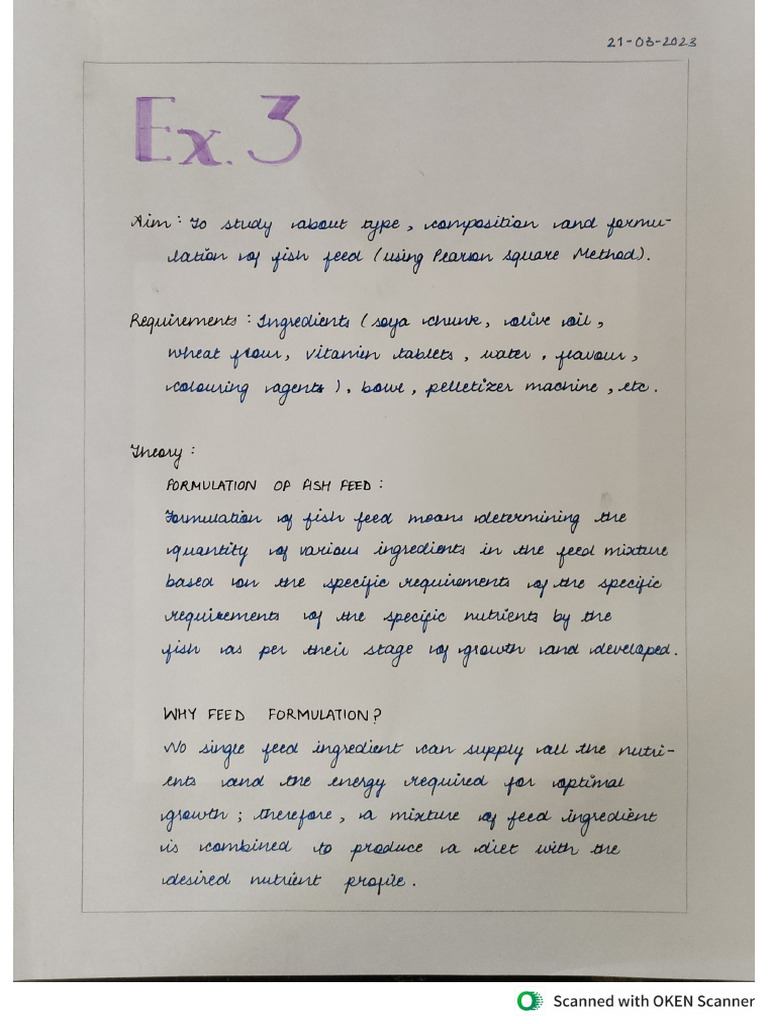 21-03-2023
Ex. 3
Aim : To study about type, composition and formu-
lation of fish feed (using Pearson Square Method).
Requirements : Ingredients (soya chunk, olive oil,
wheat flour, vitamin tablets, water, flavour,
colouring agents), bowl, pelletizer machine, etc.
Theory :
FORMULATION OF FISH FEED :
Formulation of fish feed means determining the
quantity of various ingredients in the feed mixture
based on the specific requirements of the specific
requirements of the specific nutrients by the
fish as per their stage of growth and developed.
WHY FEED FORMULATION?
No single feed ingredient can supply all the nutri-
ents and the energy required for optimal
growth ; therefore, a mixture of feed ingredient
is combined to produce a diet with the
desired nutrient profile.
Scanned with OKEN Scanner